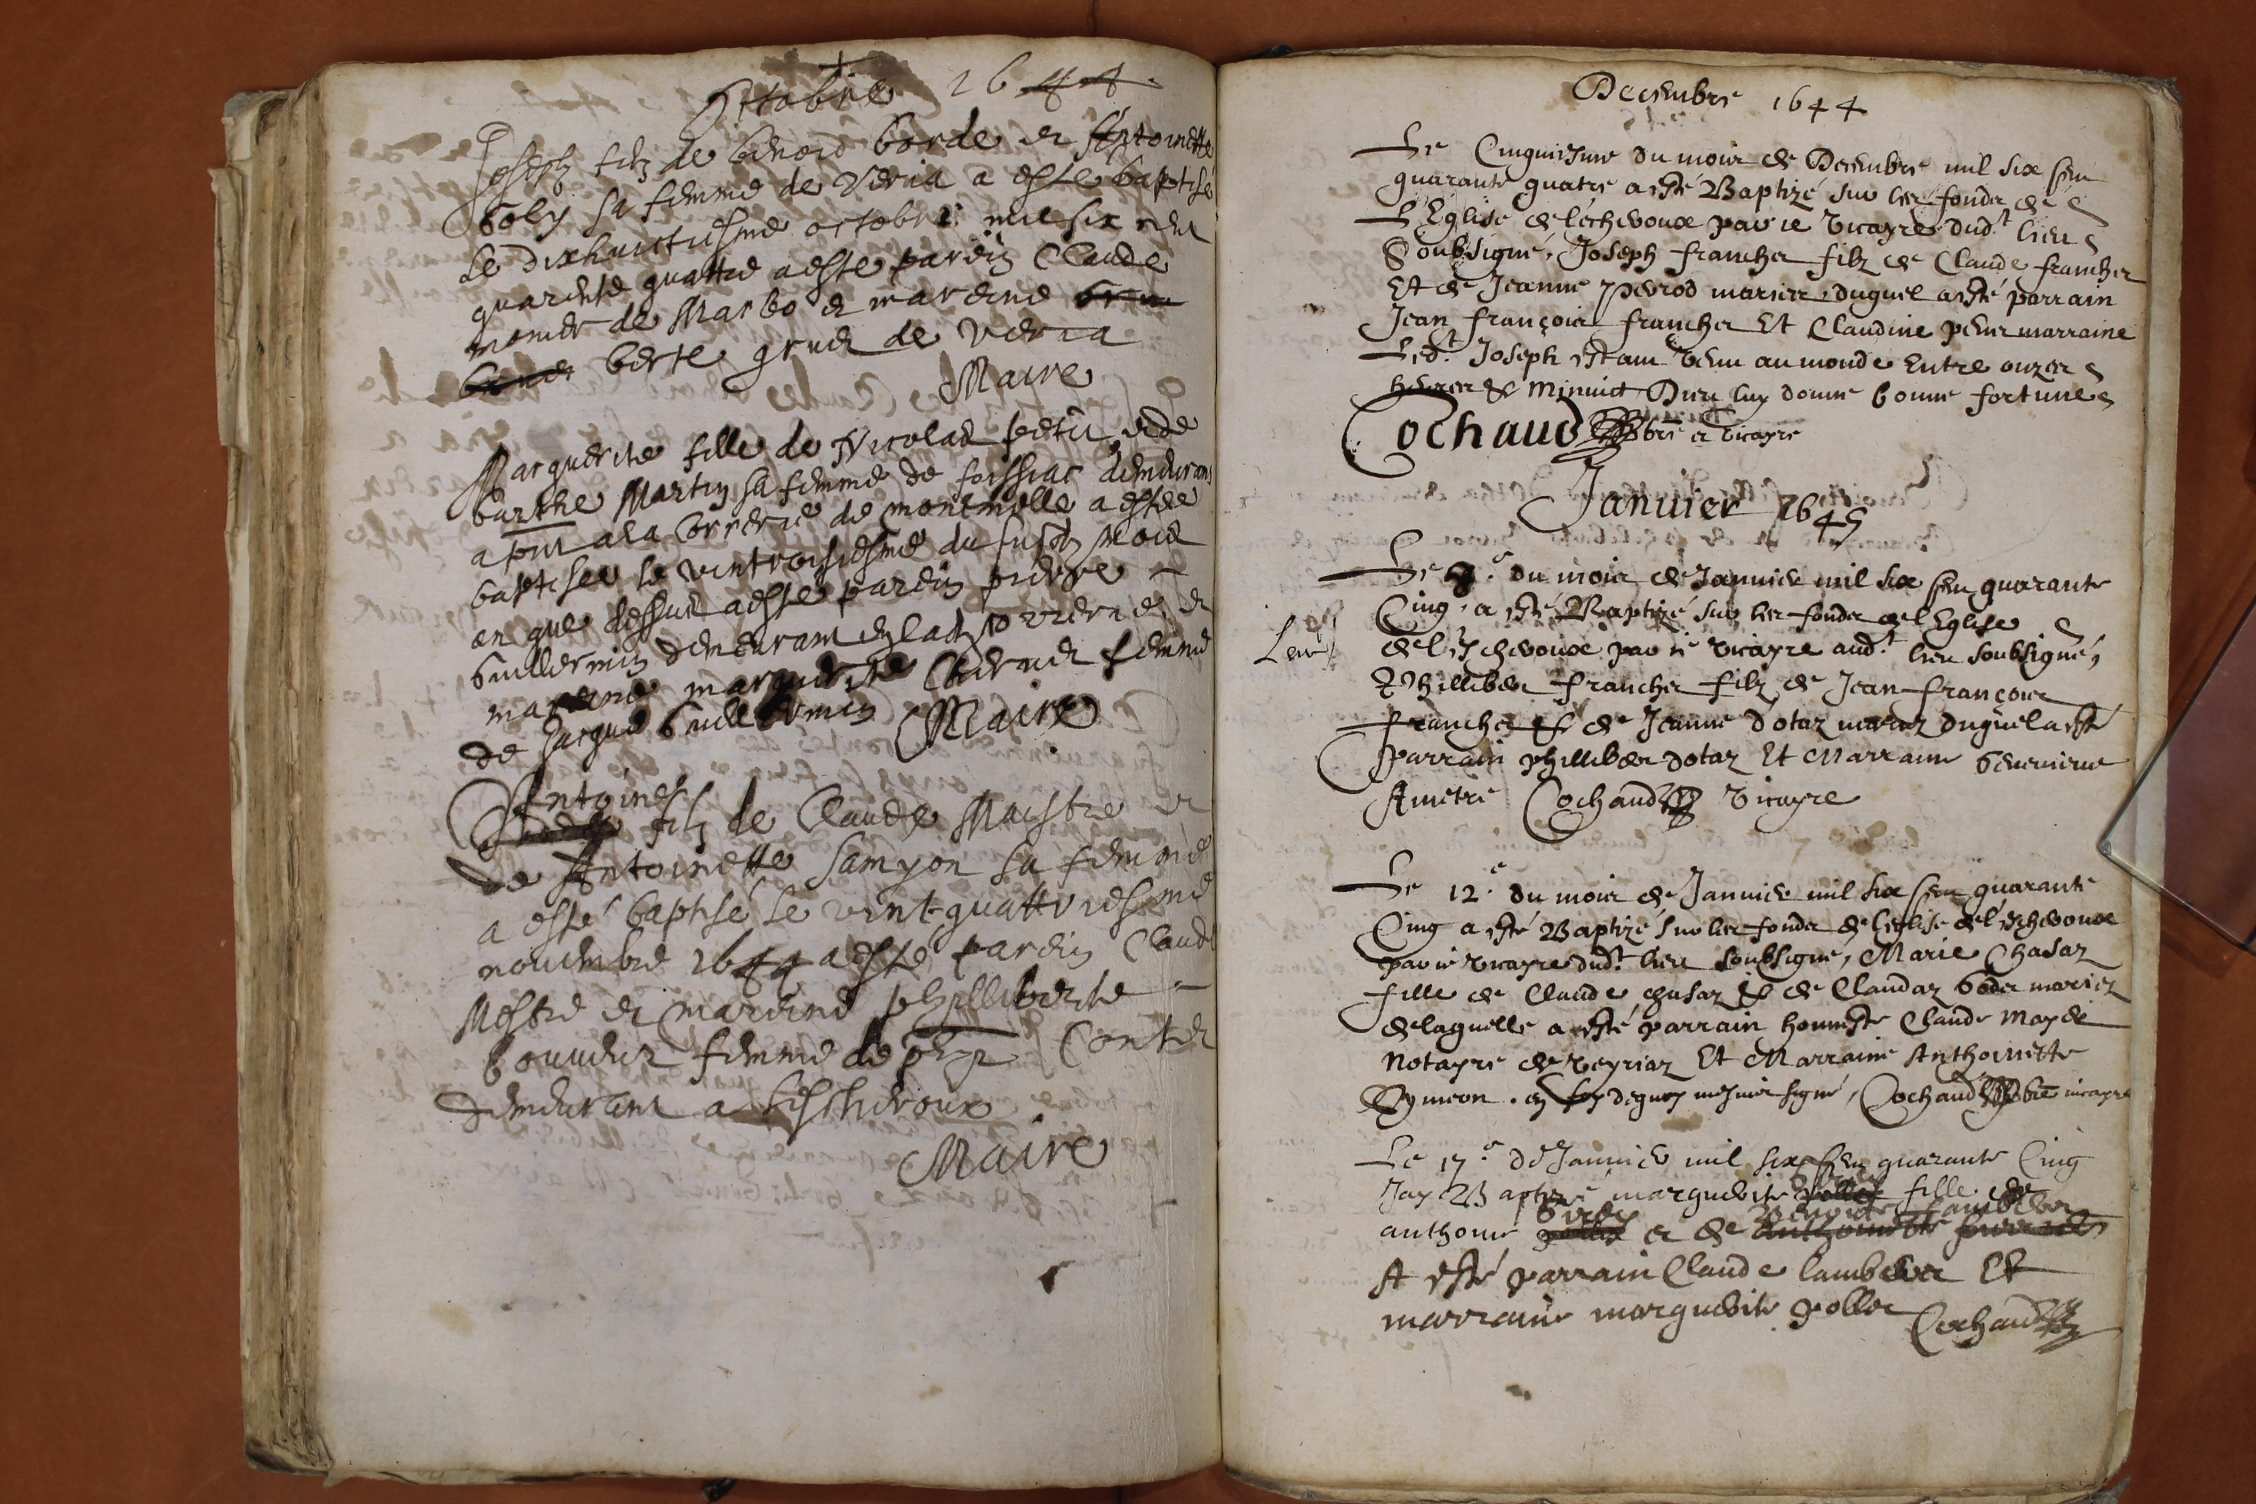 Octobre 1644
Joseph filz de benoid borde et Antoinette
boly sa femme de Veria a este baptisé
le dixhuictiesme octobre mil six cent
quarente quattre a este parein Claude
monier de Marbo et mareine
berte gruel de veria
Maire
Marguerite fille de Nicolas petit et de
barthe Martin sa femme de foissiac demeurans
a put a la borrerie de montmelle a estee
baptisee le vintroisiesme du susd mois
an que dessus a este parein pierre
Guillermin demeurant
mareine marguerite Chernet femme
de Jaque Guillermin Maire
Antoine
filz de Claude Maistre et
de Antoinette Samyon sa femme
a esté baptisé le vint-quattriesme
novembre 1644 a esté parein Claude
Mestre et mareine philliberte
bouvier femme de Contet
demeurant a lescheroux
Maire
Decembre 1644
Le Cinquiesme du mois de Decembre mil six sens
quarante quatre a esté Baptizé sur les fonds de
L'Eglise de léchevoux par ie vicayre dud.t lieu
Soubsigné, Joseph francher filz de Claude francher
Et de Jeanne Pevrod mariez, duquel a esté parrain
Jean françois francher Et Claudine peur marraine
Led.t Joseph estant venu au monde Entre onzes
heures & minuict Dieu luy donne bonne fortune
Cochaud pbre et vicayre
Januier 1645
Le 8.e du mois de Januier mil six sens quarante
Cinq, a esté Baptizé sur les fonds de l'Eglise
de l'eschevoux par ie vicayre aud.t lieu soubsigné,
Phillibert francher filz de Jean françois
francher & de Jeanne dotaz mariez duquel a esté
Parrain phillibert dotaz Et Marraine Genevieve
Ametre Cochaud vicayre
Le 12.e du mois de Januier mil six sens quarante
Cinq a esté Baptizé sur les fonds de l'eglise de l'eschevoux
par ie vicayre dud.t lieu soubsigné, Marie Chasaz
fille de Claude chasaz & de Claudaz Goder mariez
de laquelle a esté parrain honneste Claude Mayde
Notayre de veyriaz Et Marraine Anthoinette
Symeon. en foy dequoy me suis signé, Cochaud pbre vicayre
Le 17.e de Januier mil six sens quarante Cinq
Jay Baptizé marguerite fille de
anthoine et de
A esté parrain Claude lambert Et
marraine marguerite pollet Cochaud